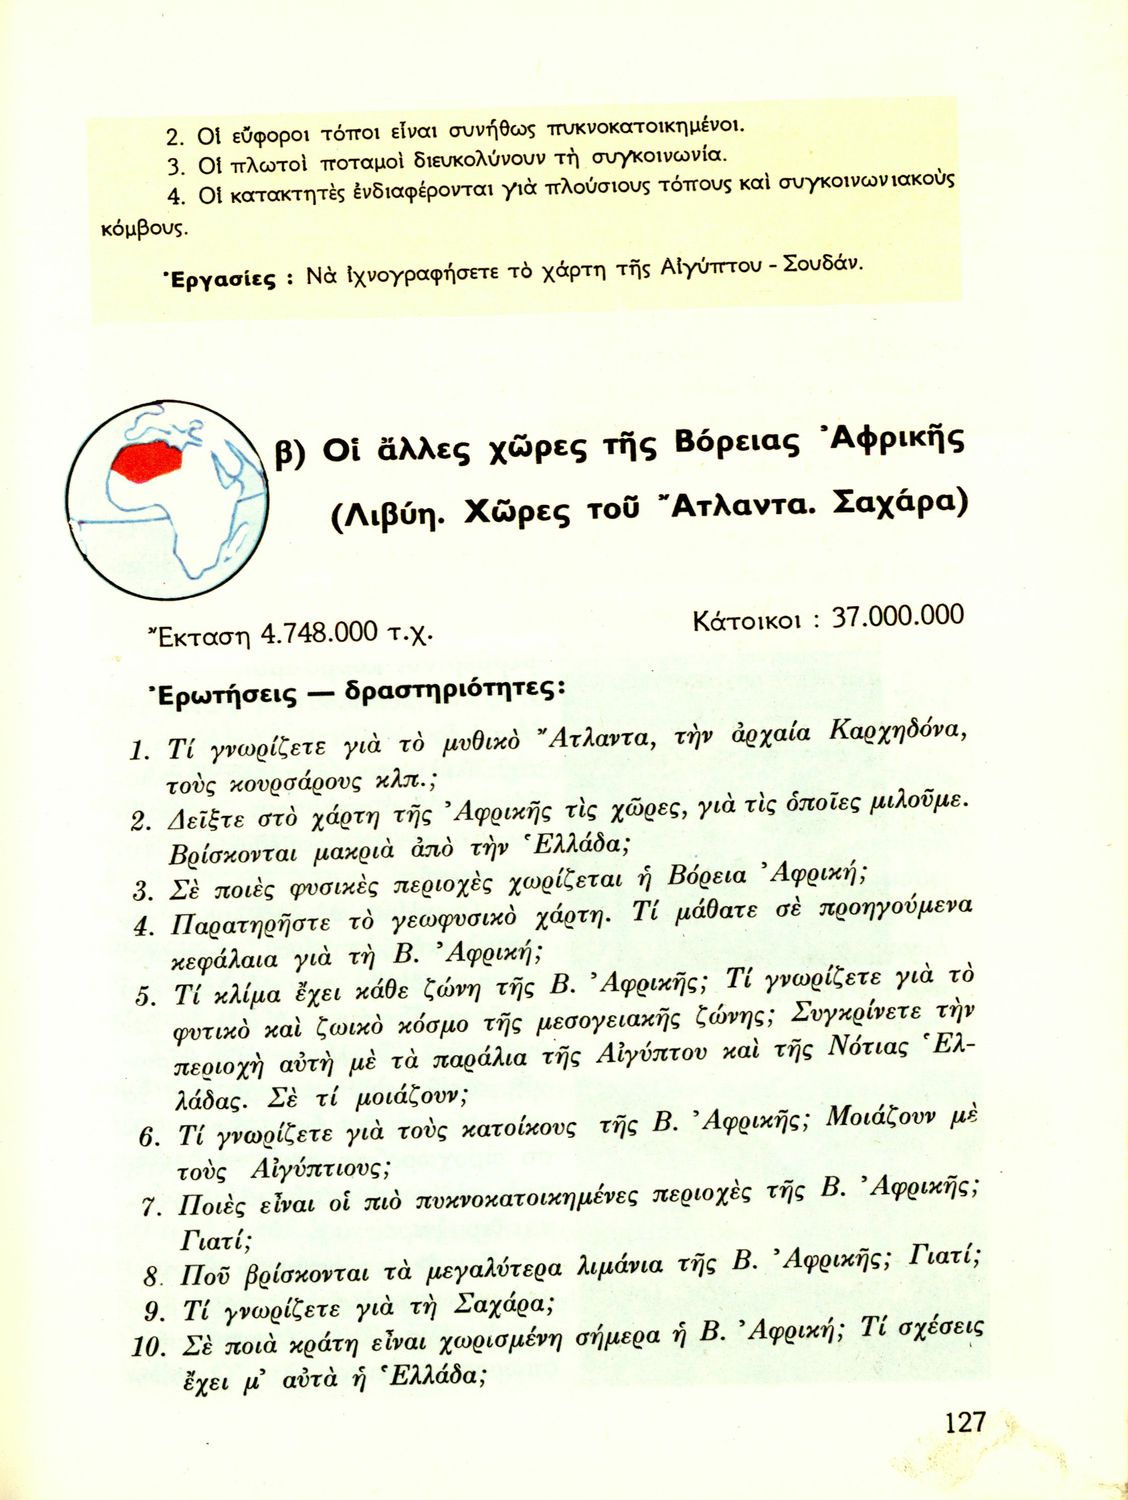 2. Οἱ εὔφοροι τόποι εἶναι συνήθως πυκνοκατοικημένοι.
3. Οἱ πλωτοὶ ποταμοὶ διευκολύνουν τὴ συγκοινωνία.
4. Οἱ κατακτητὲς ἐνδιαφέρονται γιὰ πλούσιους τόπους καὶ συγκοινωνιακοὺς
κόμβους.
Ἐργασίες : Νὰ ἰχνογραφήσετε τὸ χάρτη τῆς Αἰγύπτου - Σουδάν.
β) Οἱ ἄλλες χῶρες τῆς Βόρειας Ἀφρικῆς
(Λιβύη. Χῶρες τοῦ Ἄτλαντα. Σαχάρα)
Ἔκταση 4.748.000 τ.χ. Κάτοικοι : 37.000.000
Ἐρωτήσεις — δραστηριότητες:
1. Τί γνωρίζετε γιὰ τὸ μυθικὸ Ἄτλαντα, τὴν ἀρχαία Καρχηδόνα,
τοὺς κουρσάρους κλπ.;
2. Δεῖξτε στὸ χάρτη τῆς Ἀφρικῆς τὶς χῶρες, γιὰ τὶς ὁποῖες μιλοῦμε.
Βρίσκονται μακριὰ ἀπὸ τὴν Ἑλλάδα;
3. Σὲ ποιὲς φυσικὲς περιοχὲς χωρίζεται ἡ Βόρεια Ἀφρική;
4. Παρατηρῆστε τὸ γεωφυσικὸ χάρτη. Τί μάθατε σὲ προηγούμενα
κεφάλαια γιὰ τὴ Β. Ἀφρική;
5. Τί κλίμα ἔχει κάθε ζώνη τῆς Β. Ἀφρικῆς; Τί γνωρίζετε γιὰ τὸ
φυτικὸ καὶ ζωικὸ κόσμο τῆς μεσογειακῆς ζώνης; Συγκρίνετε τὴν
περιοχὴ αὐτὴ μὲ τὰ παράλια τῆς Αἰγύπτου καὶ τῆς Νότιας Ἑλ-
λάδας. Σὲ τί μοιάζουν;
6. Τί γνωρίζετε γιὰ τοὺς κατοίκους τῆς Β. Ἀφρικῆς; Μοιάζουν μὲ
τοὺς Αἰγύπτιους;
7. Ποιὲς εἶναι οἱ πιὸ πυκνοκατοικημένες περιοχὲς τῆς Β. Ἀφρικῆς;
Γιατί;
8. Ποῦ βρίσκονται τὰ μεγαλύτερα λιμάνια τῆς Β. Ἀφρικῆς; Γιατί;
9. Τί γνωρίζετε γιὰ τὴ Σαχάρα;
10. Σὲ ποιὰ κράτη εἶναι χωρισμένη σήμερα ἡ Β. Ἀφρική; Τί σχέσεις
ἔχει μ' αὐτὰ ἡ Ἑλλάδα;
127